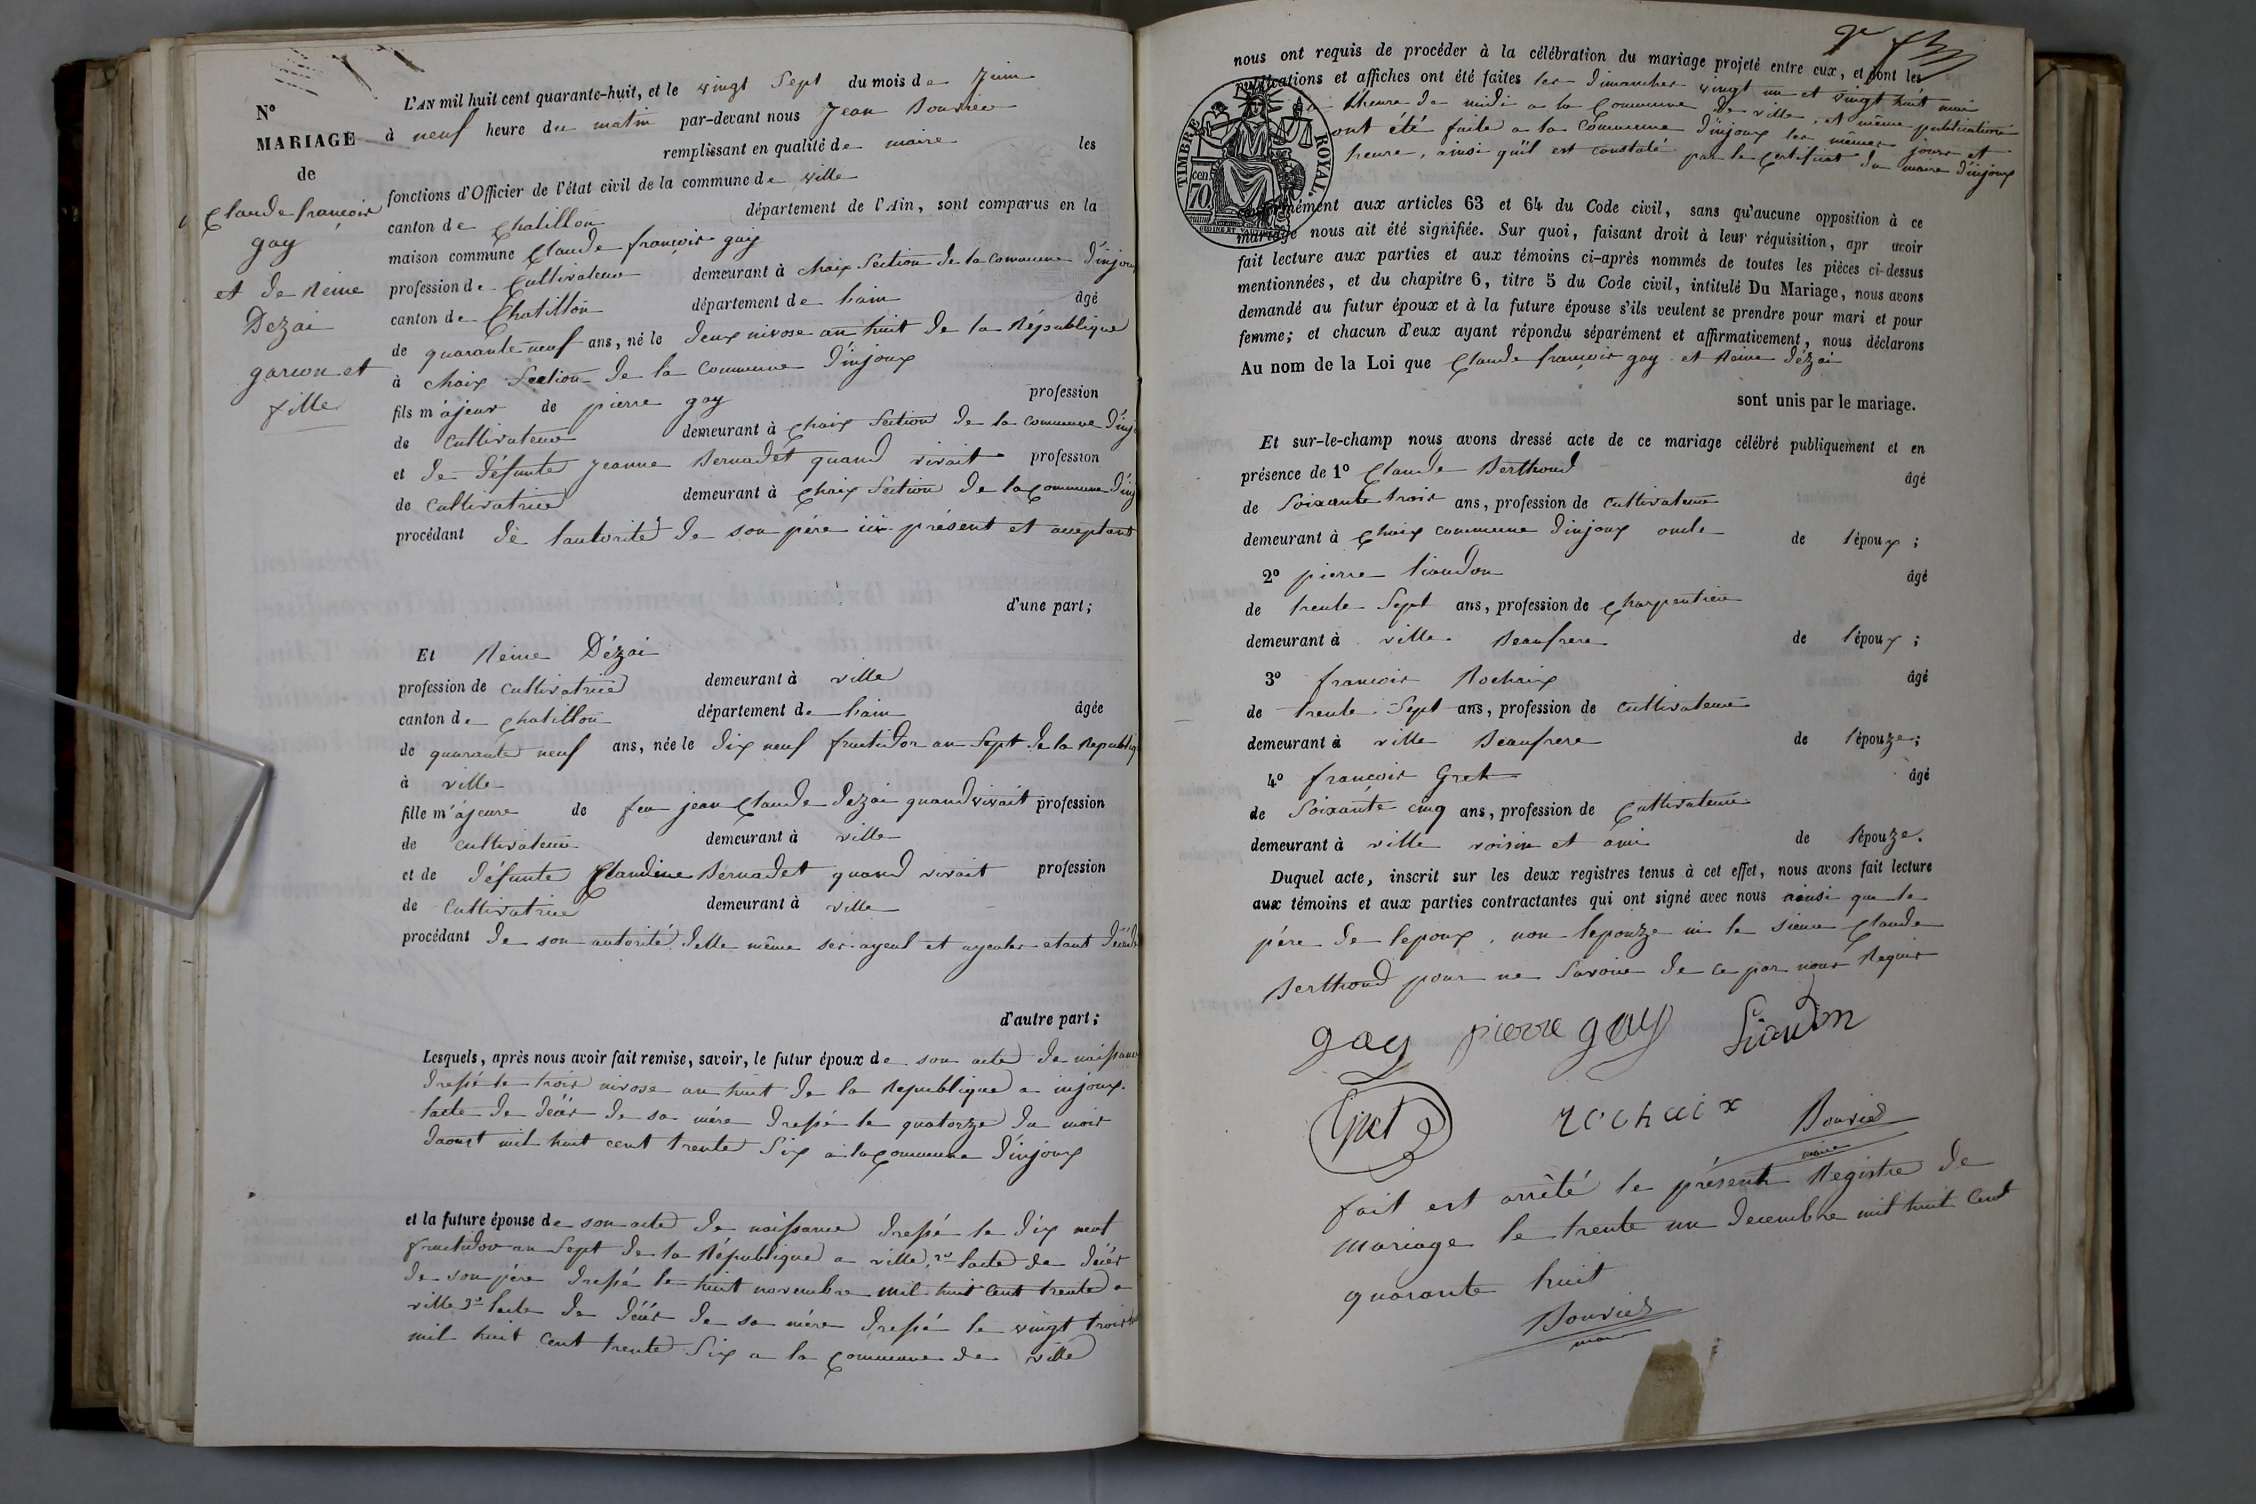 N°
MARIAGE
de
Claude françois
gay
et de Reine
Dezai
garcon et
fille
L'AN mil huit cent quarante-huit, et le vingt Sept du mois de Juin
à neuf heure du matin par-devant nous Jean Bouvier
remplissant en qualité de maire les
fonctions d'Officier de l'état civil de la commune de ville
canton de Chatillon département de l'Ain, sont comparus en la
maison commune Claude françois gay
profession de Cultivateur demeurant à chaix Section de la Commune d'injoux
canton de Chatillon département de lain âgé
de quarante neuf ans, né le deux nivose an huit de la République
à chaix Section de la Commune d'injoux
fils majeur de pierre gay profession
de Cultivateur demeurant à Chaix Section de la Commune d'inj
et de défunte jeanne Bernadet quand vivait profession
de Cultivatrice demeurant à Chaix Section de la Commune d'inj
procédant de lautorité de son père ici présent et acceptant
d'une part;
Et Reine Dézai
profession de cultivatrice demeurant à ville
canton de Chatillon département de lain âgée
de quarante neuf ans, née le dix neuf fructidor an Sept de la Republiq
à ville
fille majeure de feu jean Claude dezai quand vivait profession
de cultivateur demeurant à ville
et de défunte Claudine Bernadet quand vivait profession
de Cultivatrice demeurant à ville
procédant de son autorité delle même ses ayeul et ayeules etant décédé
d'autre part;
Lesquels, après nous avoir fait remise, savoir, le futur époux de son acte de naissance
dressé le trois nivose an huit de la Republique a injoux.
lacte de décès de sa mère dressé le quatorze du mois
daoust mil huit cent trente Six a la Commune d'injoux
et la future épouse de son acte de naissance dressé le dix neuf
fructidor an Sept de la République a ville, 2° lacte de décès
de son père dressé le huit novembre mil huit Cent trente a
ville 3° lacte de décès de sa mère dressé le vingt trois
mil huit cent trente Six a la Commune de ville
nous ont requis de procéder à la célébration du mariage projeté entre eux, et dont les
publications et affiches ont été faites les dimanches vingt un et vingt huit mai
a lheure de midi a la Commune de ville, et même publications
ont été faite a la Commune d'injoux les mêmes jours et
heure, ainsi qu'il est constaté par le Certificat du maire d'injoux
TIMBRE ROYAL.
cen 70
conformément aux articles 63 et 64 du Code civil, sans qu'aucune opposition à ce
mariage nous ait été signifiée. Sur quoi, faisant droit à leur réquisition, apr avoir
fait lecture aux parties et aux témoins ci-après nommés de toutes les pièces ci-dessus
mentionnées, et du chapitre 6, titre 5 du Code civil, intitulé Du Mariage, nous avons
demandé au futur époux et à la future épouse s'ils veulent se prendre pour mari et pour
femme; et chacun d'eux ayant répondu séparément et affirmativement, nous déclarons
Au nom de la Loi que Claude françois gay et Reine dézai
sont unis par le mariage.
Et sur-le-champ nous avons dressé acte de ce mariage célébré publiquement et en
présence de 1° Claude Berthoud âgé
de Soixante trois ans, profession de cultivateur
demeurant à Chaix commune d'injoux oncle de l'époux;
2° pierre liaudon âgé
de trente Sept ans, profession de Charpentier
demeurant à ville Beaufrere de l'époux;
3° françois Rochaix âgé
de trente Sept ans, profession de cultivateur
demeurant à ville Beaufrere de l'épouze;
4° françois Gret âgé
de Soixante cinq ans, profession de Cultivateur
demeurant à ville voisin et ami de l'épouze.
Duquel acte, inscrit sur les deux registres tenus à cet effet, nous avons fait lecture
aux témoins et aux parties contractantes qui ont signé avec nous ainsi que le
père de lepoux, non lepouze ni le sieur Claude
Berthoud pour ne Savoir de ce par nous Requis
gay pierre gay Liaudon
Gret rochaix Bouvier
maire
fait est arrêté le présent Régistre de
mariage le trente un decembre mil huit Cent
quarante huit
Bouvier
maire